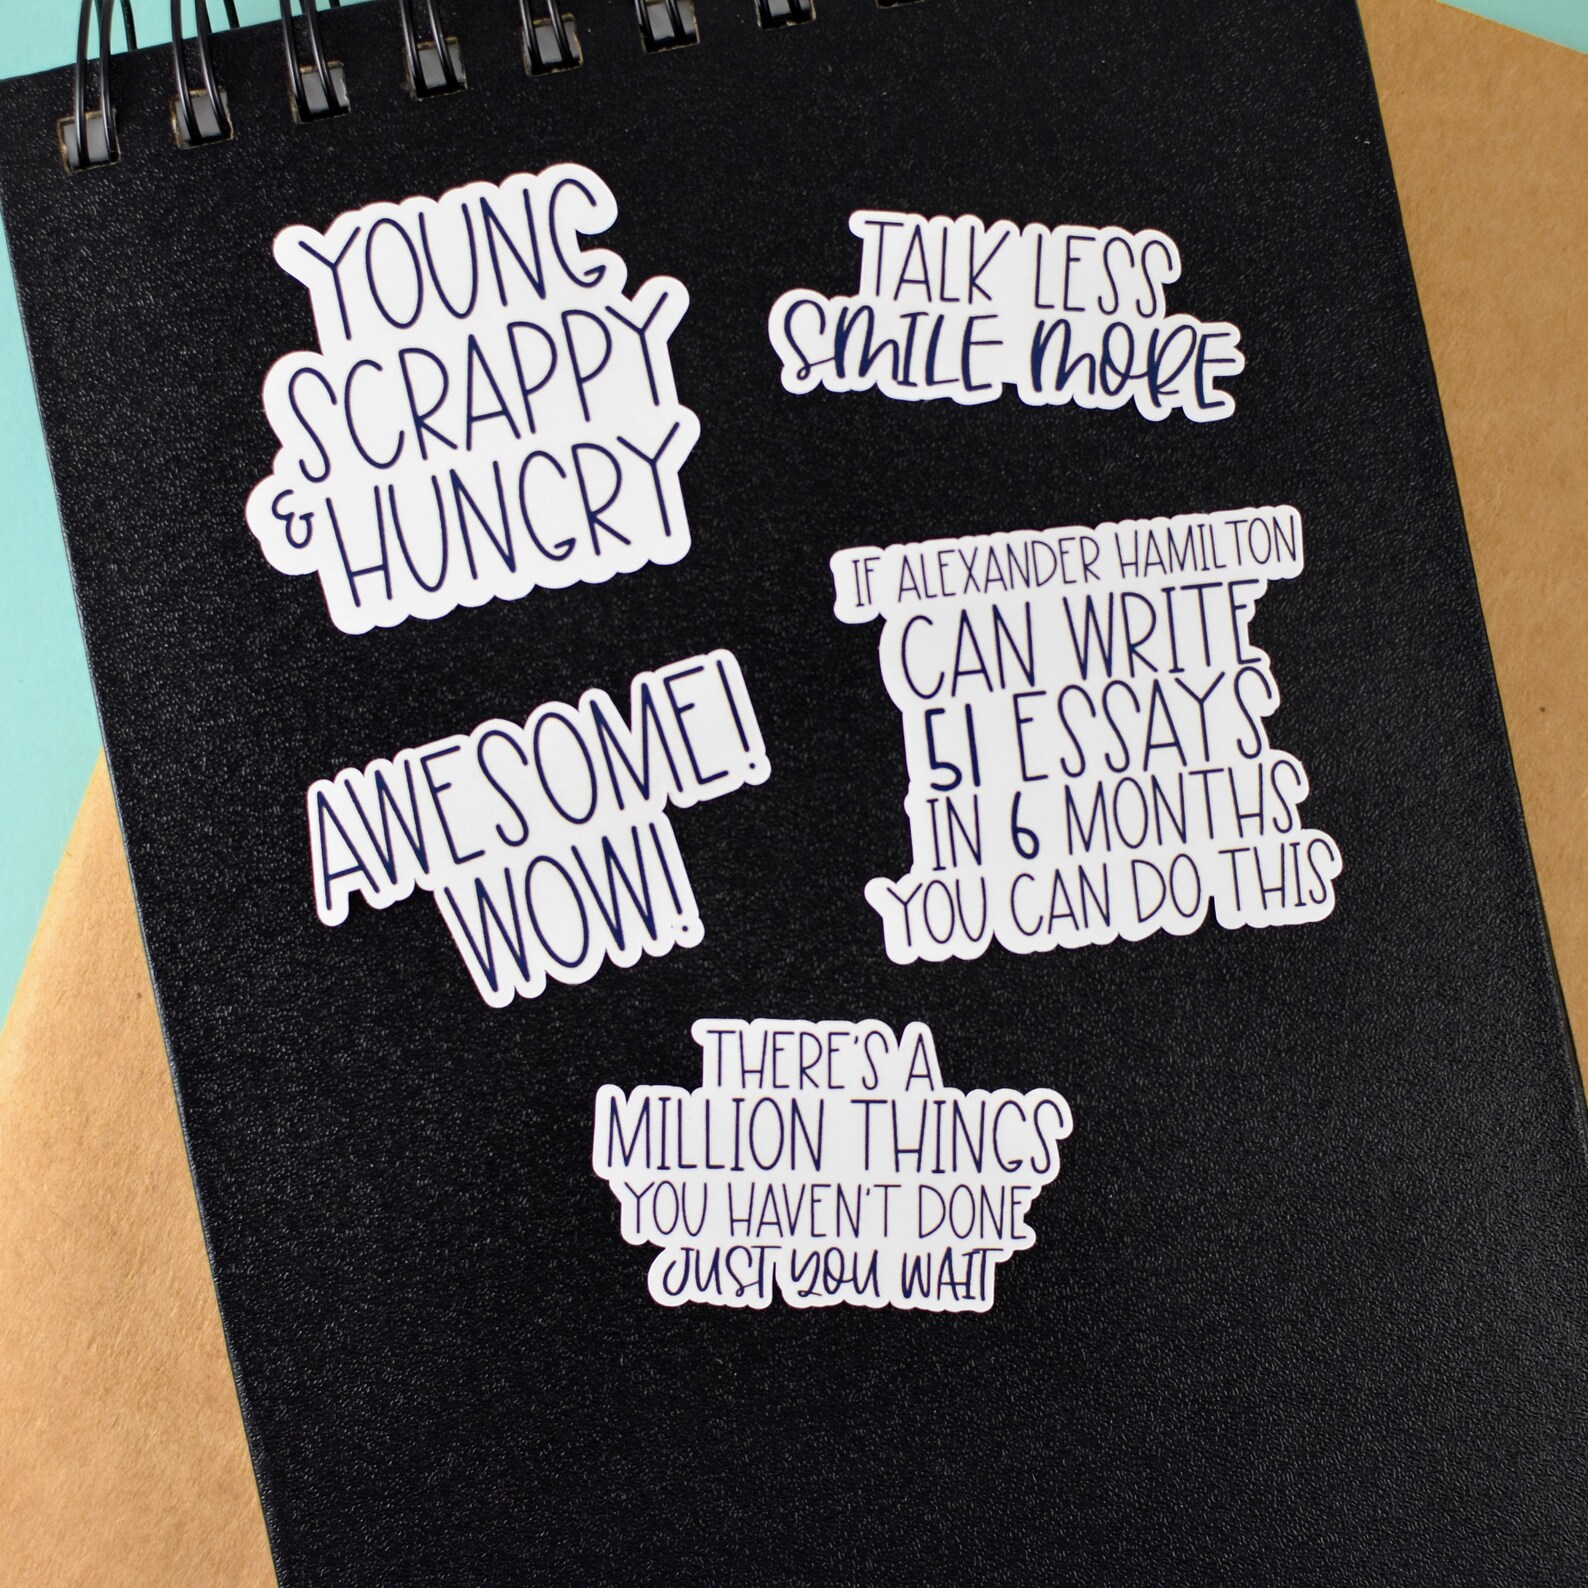 YOUNG
SCRAPPY
& HUNGRY
TALK LESS
SMILE MORE
AWESOME!
WOW!
IF ALEXANDER HAMILTON
CAN WRITE
51 ESSAYS
IN 6 MONTHS
YOU CAN DO THIS
THERE'S A
MILLION THINGS
YOU HAVEN'T DONE
JUST YOU WAIT